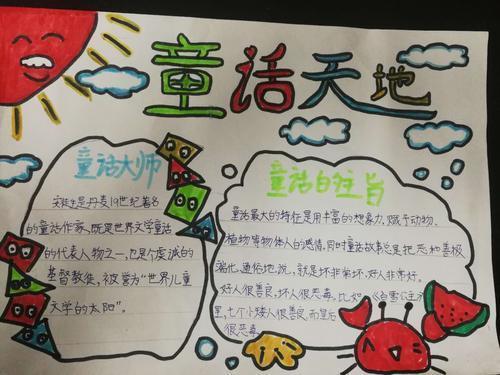 童话天地
童话大师
安徒生是丹麦19世纪著名
的童话作家,既是世界文学童话
的代表人物之一,也是个虔诚的
基督教徒,被誉为“世界儿童
文学的太阳”。
童话的主旨
童话最大的特征是用丰富的想象力,赋予动物、
植物等物体人的感情,同时童话故事总是把恶和善极
端化,通俗地说,就是坏人非常坏,好人非常好。
好人很善良,坏人很恶毒,比如《白雪公主
里,七个小矮人很善良,而皇后
很恶毒